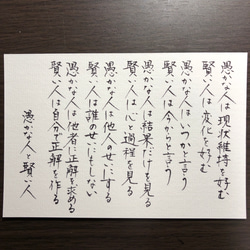 愚かな人は現状維持を好む
賢い人は変化を好む
愚かな人はいつかと言う
賢い人は今からと言う
愚かな人は結果だけを見る
賢い人は心と過程を見る
愚かな人は他人のせいにする
賢い人は誰のせいにもしない
愚かな人は他者に正解を求める
賢い人は自分で正解を作る
愚かな人と賢い人